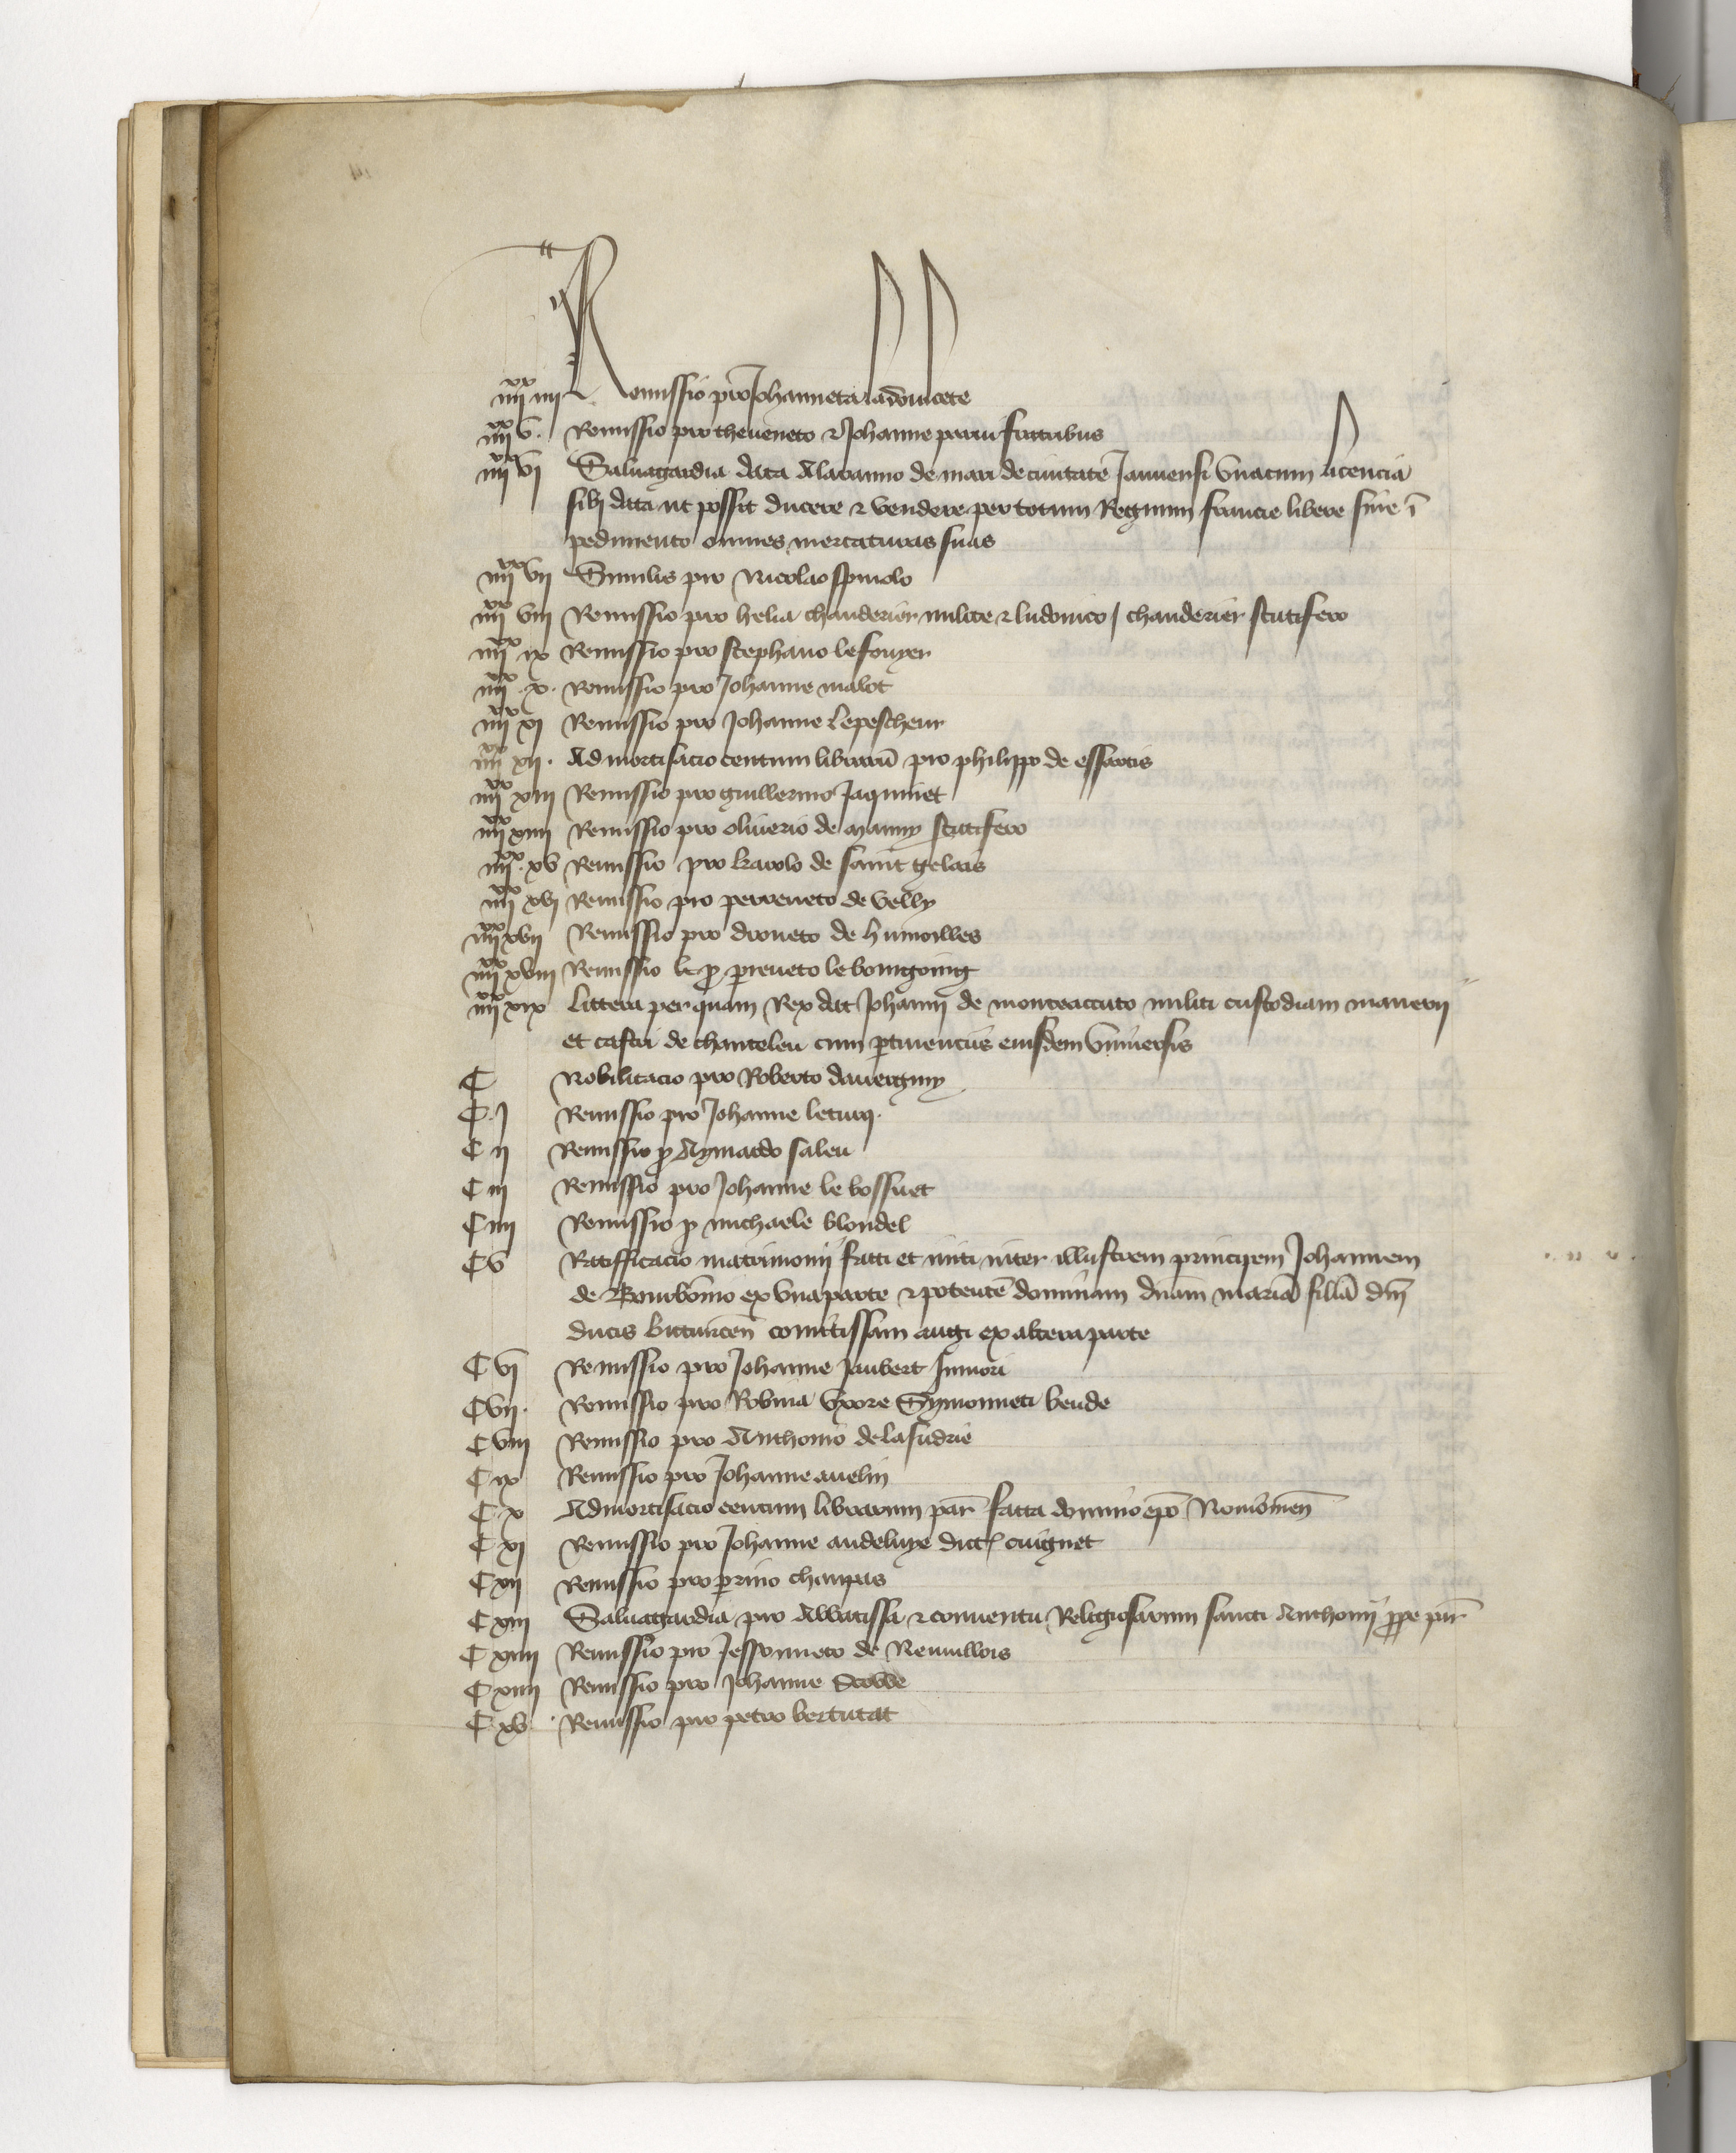 iiiixx iiii Remissio pro Johanneta ladoucete
iiiixx v. Remissio pro theveneto & Johanne prarii fratribus
iiiixx vi Salvagardia data Alaranno de mari de civitate Januensi unacum licencia
sibi data ut possit ducere & vendere per totum Regnum francie libere sine i
pedimento omnes mercaturas suas
iiiixx vii Similis pro Nicolao spinolo
iiiixx viii Remissio pro helia chanderier milite & ludovico / chanderier scutifero
iiiixx ix Remissio pro stephano lefouyer
iiiixx . x . Remissio pro Johanne malot
iiiixx xi Remissio pro Johanne Lepescheur
iiiixx xii . Admortisacio centum librarū pro philippo de essartis
iiiixx xiii Remissio pro guillermo Jaquinet
iiiixx xiiii Remissio pro oliverio de manny scutifero
iiiixx . xv Remissio pro karolo de saint gelais
iiiixx xvi Remissio pro perreneto de velly
iiiixx xvii Remissio pro droueto de humoilles
iiiixx xviii Remissio le p preneto le bourgoing
iiiixx xix Littera per quam Rex dat Johanni de monteaccuto militi custodiam manerii
et castri de chanteleu cum ptinenciis eiusdem universis
C Nobilitacio pro Roberto dauvergny
C . j Remissio pro Johanne leturq .
C ii Remissio p Aymardo saleu
C iii Remissio pro Johanne le bossuet
C iiii Remissio p michaele blondel
C v Ratifficacio matrimonii facti et initi inter illustrem principem Johannem
de Bourbonio ex una parte & potentē dominam dnam mariā filiā dni
ducis bituricen comitissam augi ex altera parte
C vi Remissio pro Johanne Jaubert Juniori
C vii . Remissio pro Robina uxore Symonneti beude
C viii Remissio pro Anthonio delasudrie
C ix Remissio pro Johanne avelin
C x Admortisacio centum librarum par facta domino epo Noviomen
C xi Remissio pro Johanne andeluye dict cuignet
C xii Remissio pro perino champas
C xiii Salvagardia pro Abbatissa & conventu Religiosarum sancti Anthonii ppe par
C xiiii Remissio pro Jessonneto de Neuvillois
C xiiii Remissio pro Johanne
C xv . Remissio pro petro bertutat